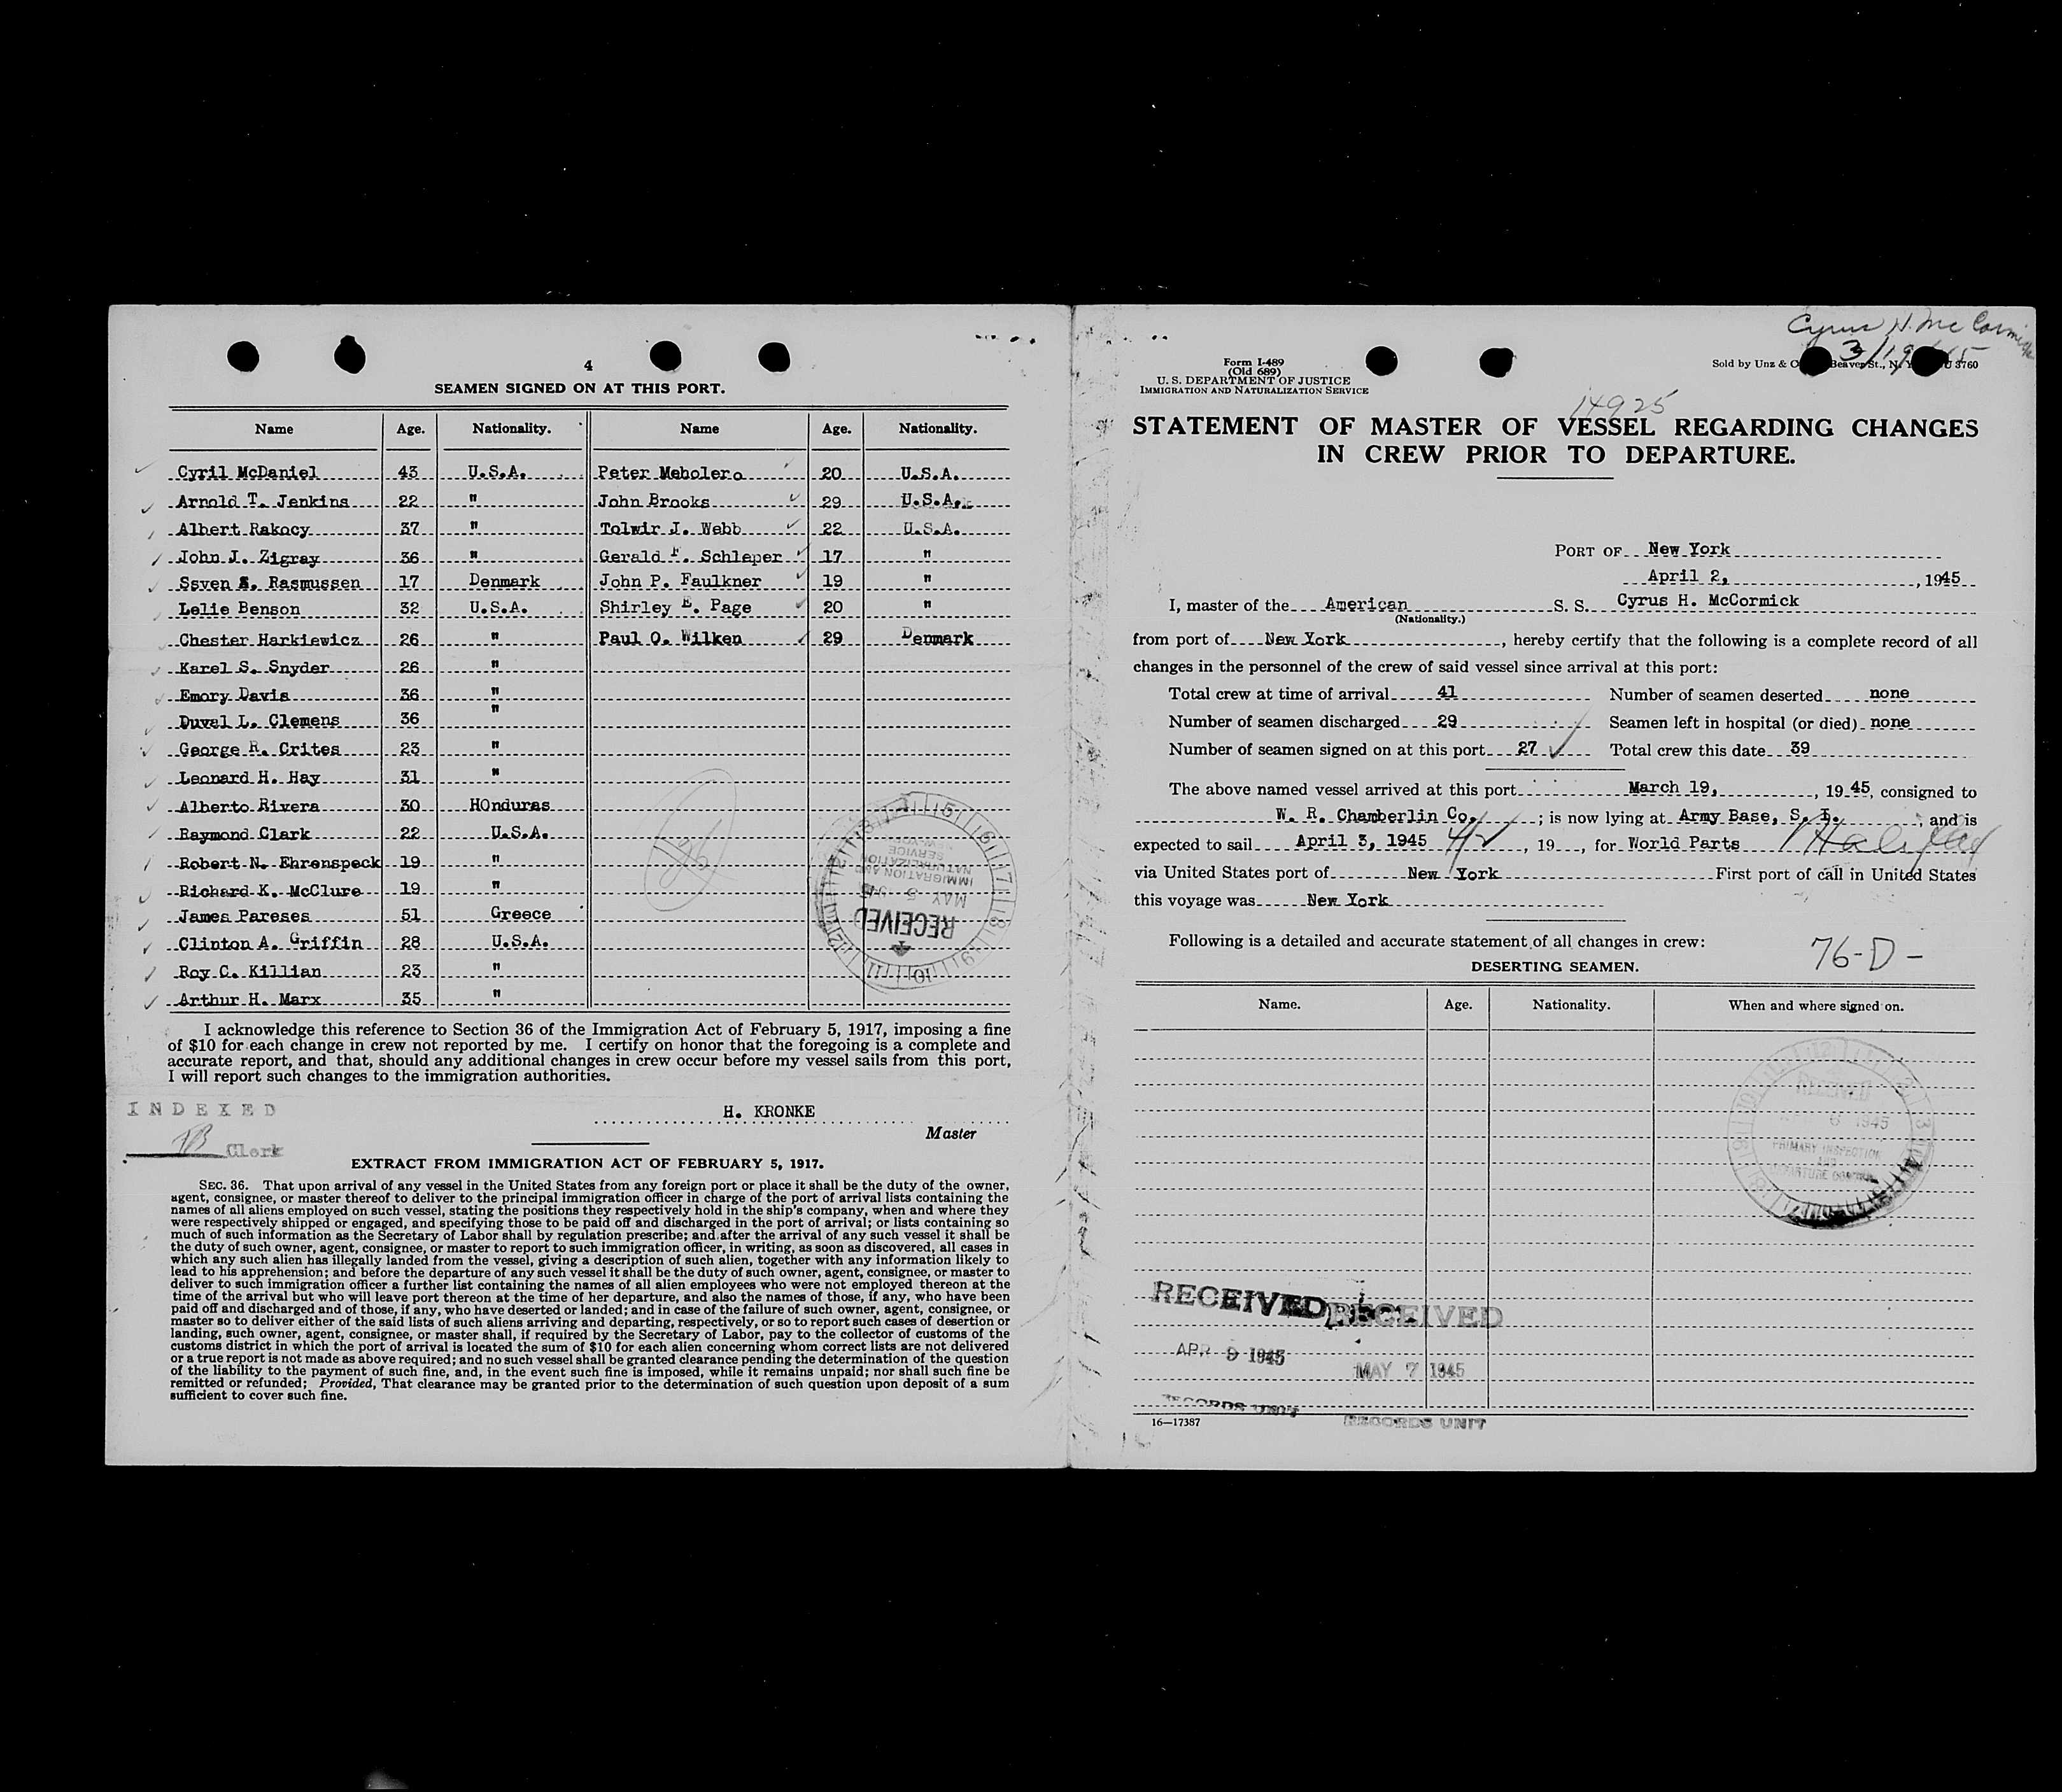 4
SEAMEN SIGNED ON AT THIS PORT.
Name Age. Nationality. Name Age. Nationality.
Cyril McDaniel 43 U.S.A. Peter Meholero 20 U.S.A.
Arnold T. Jenkins 22 " John Brooks 29 U.S.A.
Albert Rakocy 37 " Tolwir J. Webb 22 U.S.A.
John J. Zigray 36 " Gerald F. Schleper 17 "
Ssven S. Rasmussen 17 Denmark John P. Faulkner 19 "
Lelie Benson 32 U.S.A. Shirley E. Page 20 "
Chester Harkiewicz 26 " Paul O. Wilken 29 Denmark
Karel S. Snyder 26 "
Emory Davis 36 "
Duval L. Clemens 36 "
George R. Crites 23 "
Leonard H. Hay 31 "
Alberto Rivera 30 HOnduras
Raymond Clark 22 U.S.A.
Robert N. Ehrenspeck 19 "
Richard K. McClure 19 "
James Pareses 51 Greece
Clinton A. Griffin 28 U.S.A.
Roy C. Killian 23 "
Arthur H. Marx 35 "
RECEIVED
MAY 5 1945
IMMIGRATION AND
NATURALIZATION
SERVICE
I acknowledge this reference to Section 36 of the Immigration Act of February 5, 1917, imposing a fine
of $10 for each change in crew not reported by me. I certify on honor that the foregoing is a complete and
accurate report, and that, should any additional changes in crew occur before my vessel sails from this port,
I will report such changes to the immigration authorities.
INDEXED
Clerk
H. KRONKE
Master
EXTRACT FROM IMMIGRATION ACT OF FEBRUARY 5, 1917.
SEC. 36. That upon arrival of any vessel in the United States from any foreign port or place it shall be the duty of the owner,
agent, consignee, or master thereof to deliver to the principal immigration officer in charge of the port of arrival lists containing the
names of all aliens employed on such vessel, stating the positions they respectively hold in the ship's company, when and where they
were respectively shipped or engaged, and specifying those to be paid off and discharged in the port of arrival; or lists containing so
much of such information as the Secretary of Labor shall by regulation prescribe; and after the arrival of any such vessel it shall be
the duty of such owner, agent, consignee, or master to report to such immigration officer, in writing, as soon as discovered, all cases in
which any such alien has illegally landed from the vessel, giving a description of such alien, together with any information likely to
lead to his apprehension; and before the departure of any such vessel it shall be the duty of such owner, agent, consignee, or master to
deliver to such immigration officer a further list containing the names of all alien employees who were not employed thereon at the
time of the arrival but who will leave port thereon at the time of her departure, and also the names of those, if any, who have been
paid off and discharged and of those, if any, who have deserted or landed; and in case of the failure of such owner, agent, consignee, or
master so to deliver either of the said lists of such aliens arriving and departing, respectively, or so to report such cases of desertion or
landing, such owner, agent, consignee, or master shall, if required by the Secretary of Labor, pay to the collector of customs of the
customs district in which the port of arrival is located the sum of $10 for each alien concerning whom correct lists are not delivered
or a true report is not made as above required; and no such vessel shall be granted clearance pending the determination of the question
of the liability to the payment of such fine, and, in the event such fine is imposed, while it remains unpaid; nor shall such fine be
remitted or refunded; Provided, That clearance may be granted prior to the determination of such question upon deposit of a sum
sufficient to cover such fine.
Cyrus H. McCormick
3/19/45
Form I-489
(Old 689)
U. S. DEPARTMENT OF JUSTICE
IMMIGRATION AND NATURALIZATION SERVICE
Sold by Unz & Beaver St., N. 3760
14925
STATEMENT OF MASTER OF VESSEL REGARDING CHANGES
IN CREW PRIOR TO DEPARTURE.
PORT OF New York
April 2, , 1945
I, master of the American S. S. Cyrus H. McCormick
(Nationality.)
from port of New York , hereby certify that the following is a complete record of all
changes in the personnel of the crew of said vessel since arrival at this port:
Total crew at time of arrival 41 Number of seamen deserted none
Number of seamen discharged 29 Seamen left in hospital (or died) none
Number of seamen signed on at this port 27 Total crew this date 39
The above named vessel arrived at this port March 19, , 19 45, consigned to
W. R. Chamberlin Co. ; is now lying at Army Base, S. I. , and is
expected to sail April 3, 1945 4/2 , 19 , for World Parts Halifax
via United States port of New York First port of call in United States
this voyage was New York
Following is a detailed and accurate statement of all changes in crew:
76-D-
DESERTING SEAMEN.
Name. Age. Nationality. When and where signed on.
RECEIVED
6 1945
PRIMARY INSPECTION
AND
DEPARTURE CONTROL
RECEIVED RECEIVED
APR 9 1945 MAY 7 1945
RECORDS UNIT RECORDS UNIT
16—17387